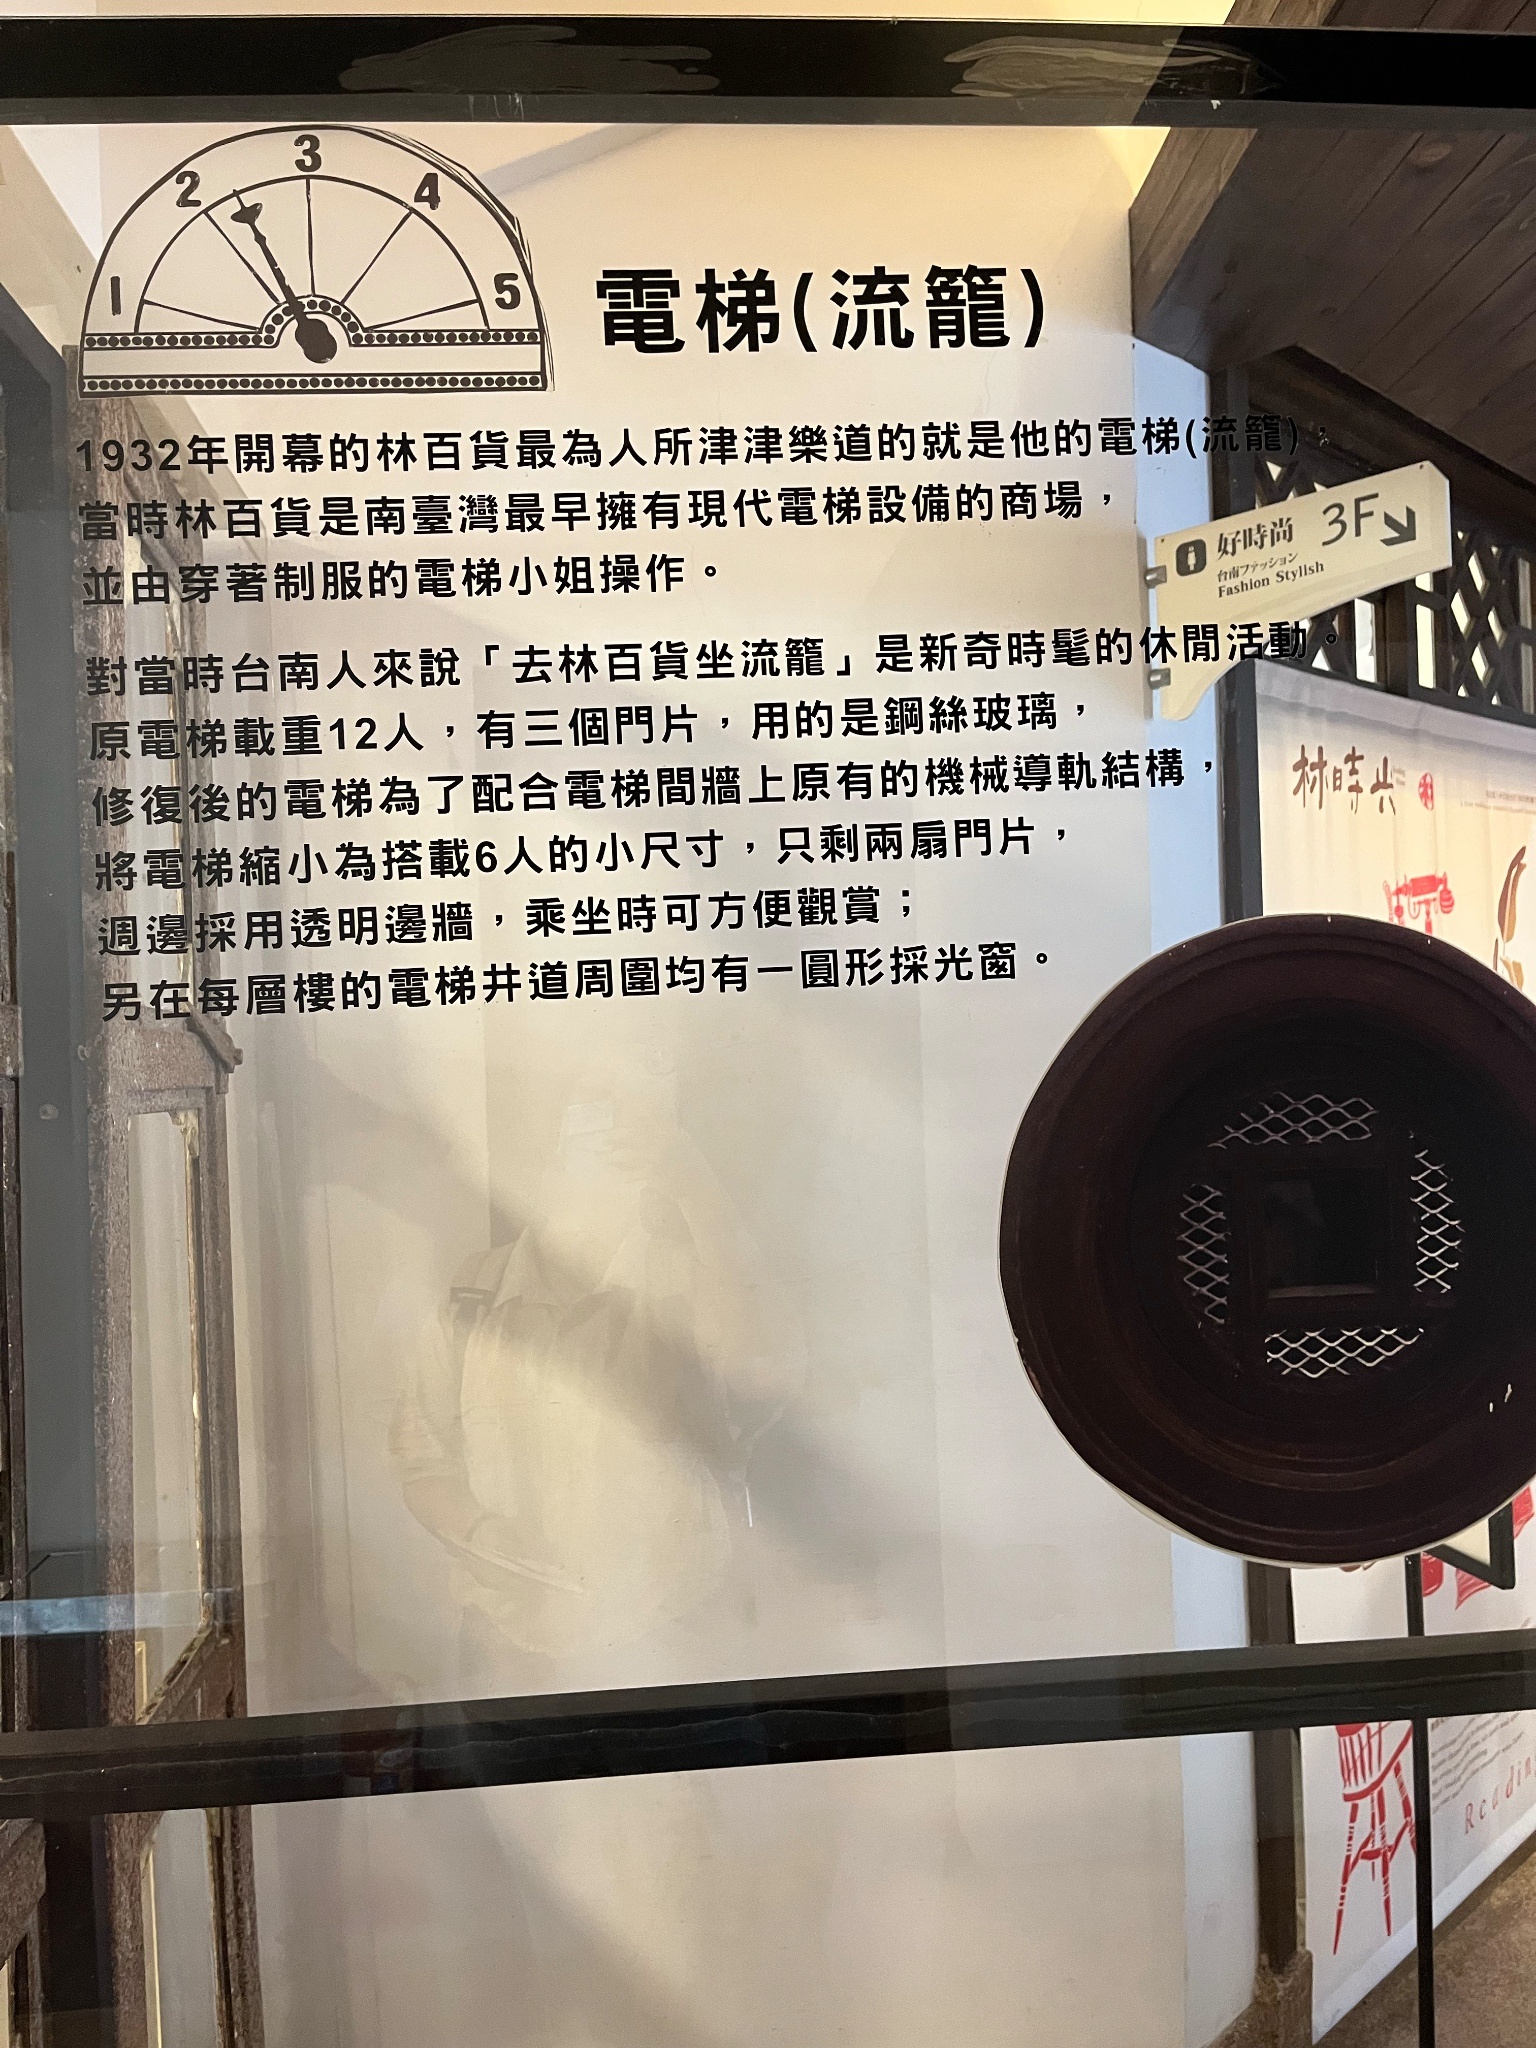 1
2
3
4
5
電梯(流籠)
1932年開幕的林百貨最為人所津津樂道的就是他的電梯(流籠)，
當時林百貨是南臺灣最早擁有現代電梯設備的商場，
並由穿著制服的電梯小姐操作。
對當時台南人來說「去林百貨坐流籠」是新奇時髦的休閒活動。
原電梯載重12人，有三個門片，用的是鋼絲玻璃，
修復後的電梯為了配合電梯間牆上原有的機械導軌結構，
將電梯縮小為搭載6人的小尺寸，只剩兩扇門片，
週邊採用透明邊牆，乘坐時可方便觀賞；
另在每層樓的電梯井道周圍均有一圓形採光窗。
好時尚 3F
台南ファッション
Fashion Stylish
林時共
Readin